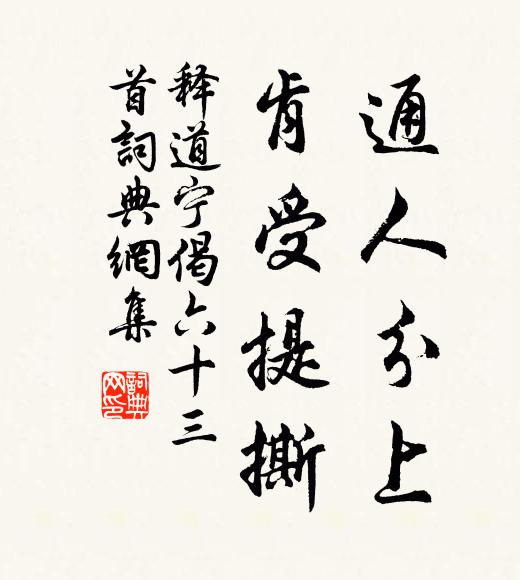 通人分上
肯受提撕
释道宁偈六十三
首詞典網集
詞典網印